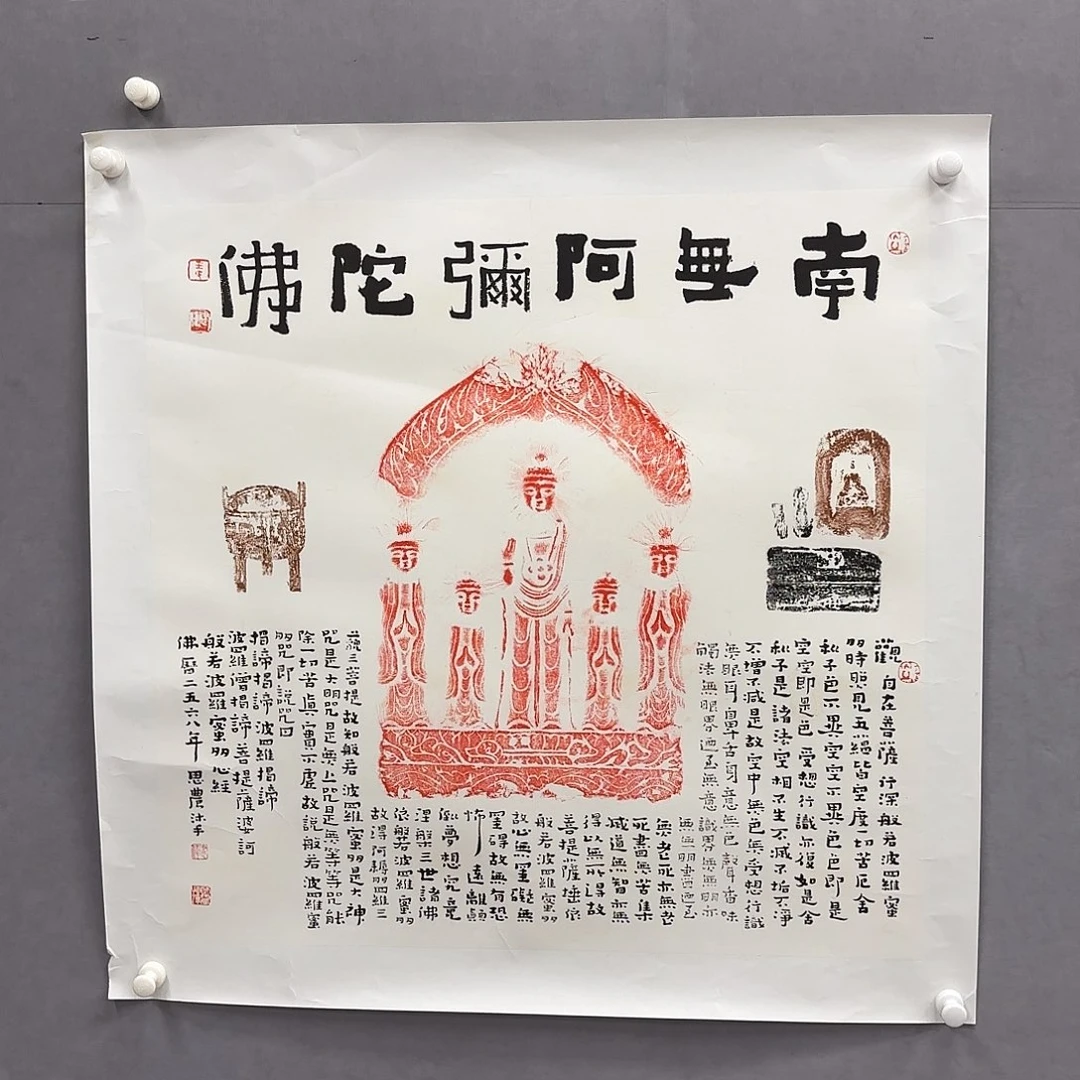 南無阿彌陀佛
觀自在菩薩行深般若波羅蜜
多時照見五蘊皆空度一切苦厄舍
利子色不異空空不異色色即是
空空即是色受想行識亦復如是舍
利子是諸法空相不生不滅不垢不淨
不增不減是故空中無色無受想行識
無眼耳鼻舌身意無色聲香味
觸法無眼界迺至無意識界無無明亦
無無明盡迺至
無老死亦無老
死盡無苦集
滅道無智亦無
得以無所得故
菩提薩埵依
般若波羅蜜多
故心無罣礙無
罣礙故無有恐
怖遠離顛
倒夢想究竟
涅槃三世諸佛
依般若波羅蜜多
故得阿耨多羅三
藐三菩提故知般若波羅蜜多是大神
咒是大明咒是無上咒是無等等咒能
除一切苦真實不虛故說般若波羅蜜
多咒即說咒曰
揭諦揭諦波羅揭諦
波羅僧揭諦菩提薩婆訶
般若波羅蜜多心經
佛曆二五六八年思農沐手